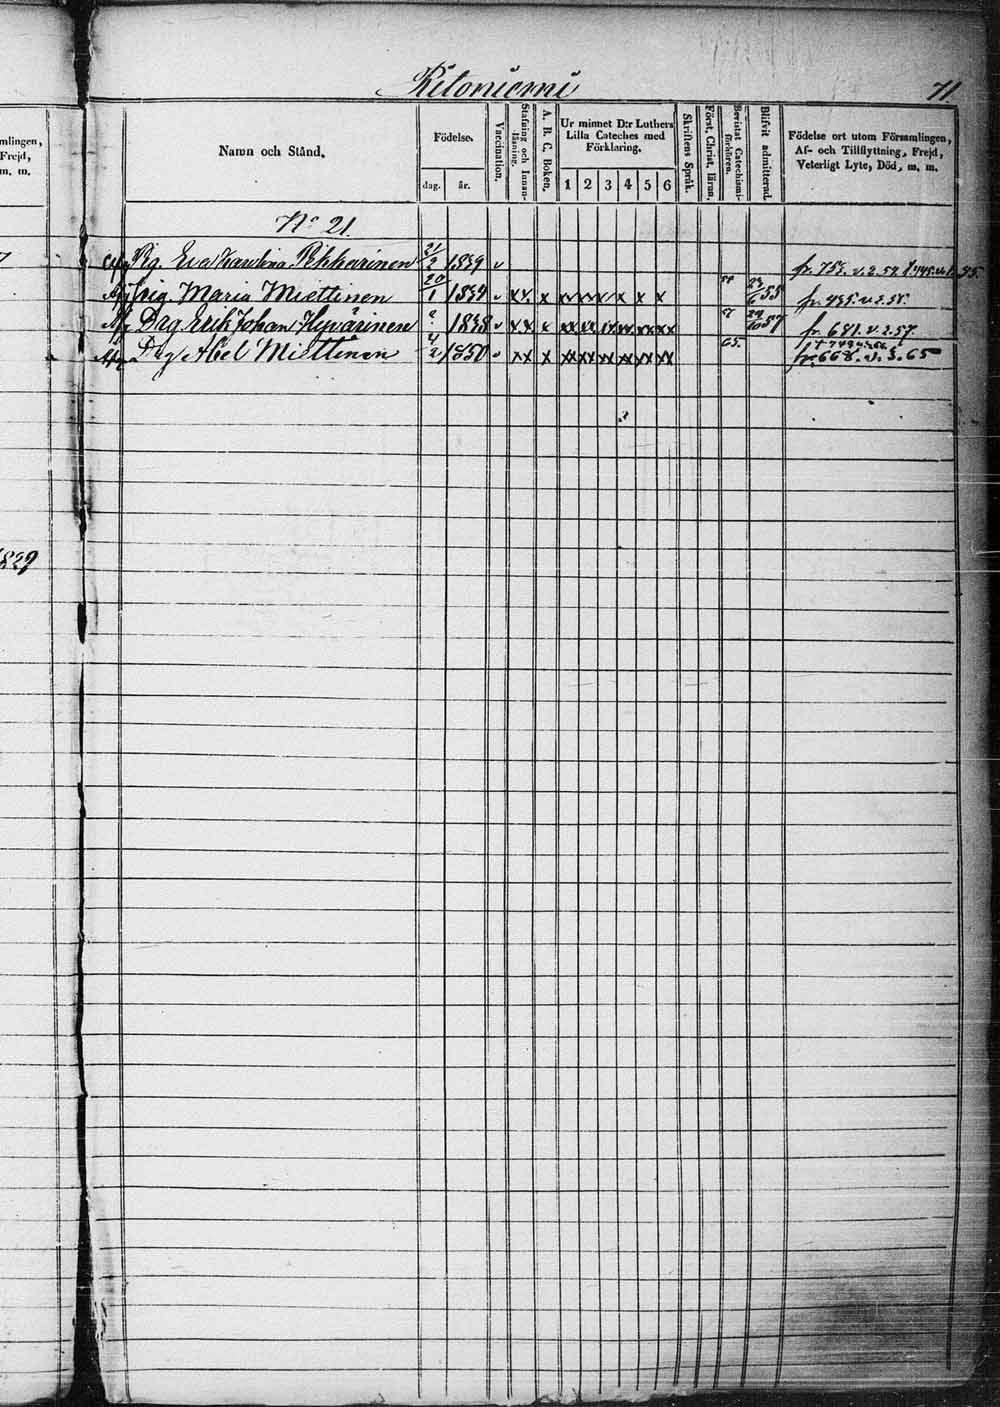 Kitoniemi 71
mlingen,
Frejd,
m. m.
Namn och Stånd.
Födelse.
dag. år.
Vaccination.
Stafning och Innan-läsning.
A. B. C. Boken.
Ur minnet D:r Luthers
Lilla Cateches med
Förklaring.
1 2 3 4 5 6
Skriftens Språk.
Först. Christ. läran.
Bevistat Catechismi-förhören.
Blifvit admitterad.
Födelse ort utom Församlingen,
Af- och Tillflyttning, Frejd,
Veterligt Lyte, Död, m. m.
No 21.
Pig. Eva Karolina Pekkarinen 21/2 1839 v fr. 753. v. 2. 57.
Pig. Maria Miettinen 20/1 1834 v xx x x x x x x x 58 55 fr. 435. v. 2. 58.
Drg Erik Johan Hyvärinen 1838 v xx x xx xx xx xx xx xx 57 57 fr. 681. v. 2. 57.
Drg Abel Miettinen 4/2 1850 v xx x xx xx xx xx xx xx 65. fr. 668. v. 3. 65
1829